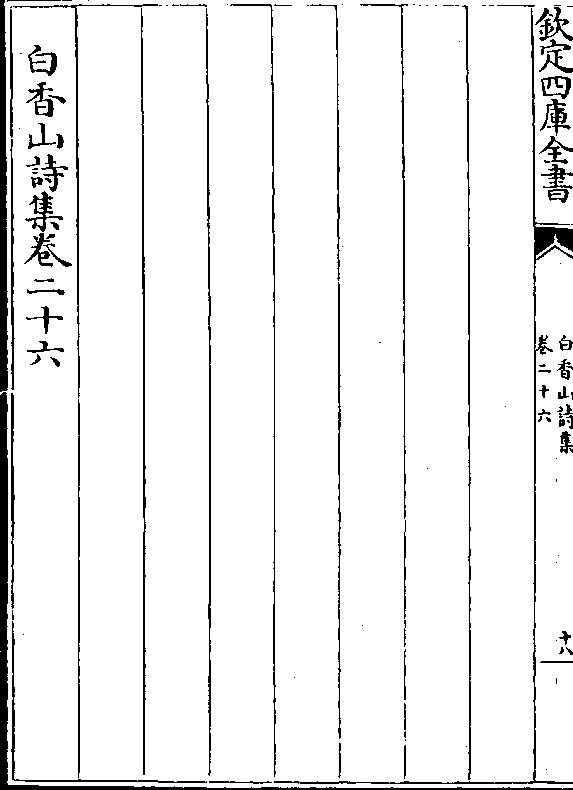 欽定四庫全書
白香山詩集
卷二十六
十八
白香山詩集卷二十六